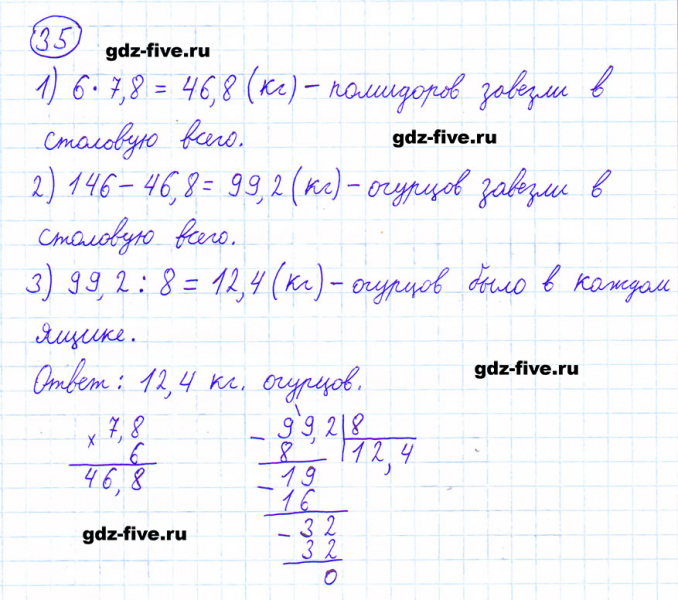 35
gdz-five.ru
1) 6 · 7,8 = 46,8 (кг) – помидоров завезли в
столовую всего.
gdz-five.ru
2) 146 – 46,8 = 99,2 (кг) – огурцов завезли в
столовую всего.
3) 99,2 : 8 = 12,4 (кг) – огурцов было в каждом
ящике.
gdz-five.ru
Ответ: 12,4 кг. огурцов.
× 7,8
6
46,8
– 99,2 | 8
8 | 12,4
– 19
16
– 32
32
0
gdz-five.ru